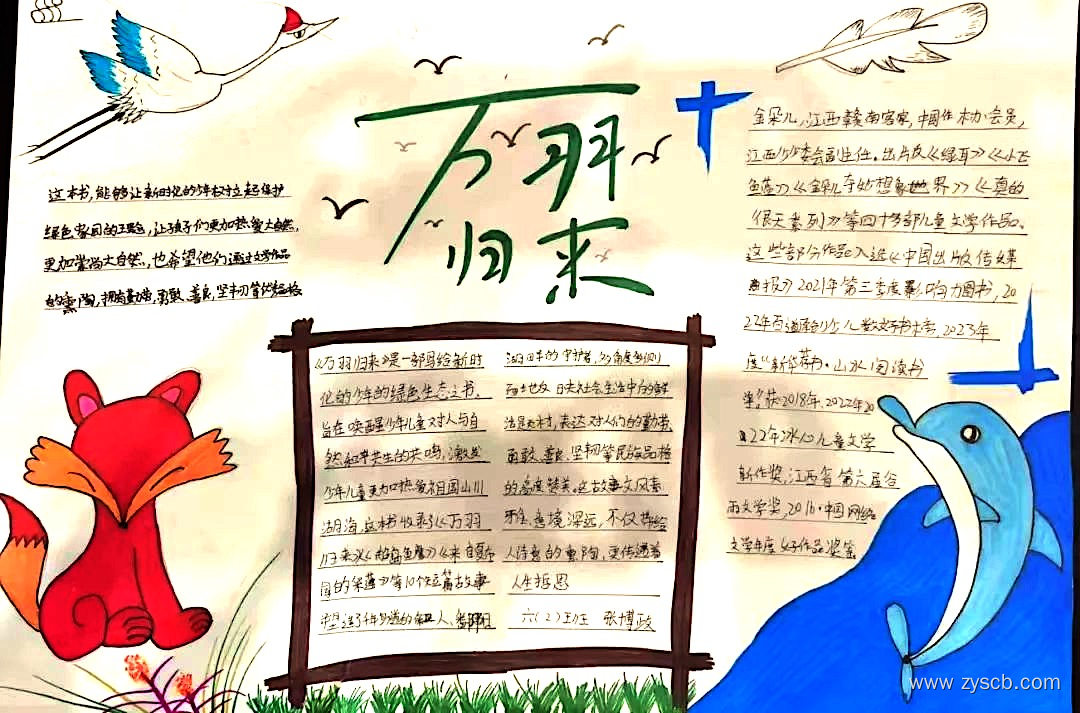 万羽
归来
这本书,能够让新时代的少年树立起保护
绿色家园的王题,让孩子们更加热爱大自然,
更加崇尚大自然,也希望他们通过文学作品
的熏陶,拥有勤劳,勇敢、善良,坚韧等优秀品格
《万羽归来》是一部写给新时
代的少年的绿色生态之书。
旨在唤醒少年儿童对人与自
然和平共生的共鸣,激发
少年儿童更加热爱祖国山川
湖海,这本书收录了《万羽
归来》《鱼鹰》《来自
国的朱鹮》等10个短篇故事
塑造了
湖的守护者,多角度
日失社会生活中的鲜
活题材,表达对人们的勤劳,
勇敢、善良、坚韧等民族品格
的高度赞美。这故事文风素
雅,意境深远,不仅带给
人诗意的熏陶,更传递着
人生哲思
六(2)班 张博政
金朵儿,江西赣南客家,中国作协会员,
江西少委会副主任。出版《绿耳》《小飞
鱼蓝》《金朵儿奇妙想象世界》《真的
很天系列》等四十多部儿童文学作品。
这些部分作品入选《中国出版传媒
商报》2021年第三季度影响力图书,20
22年百道原创少儿类好书榜,2023年
度"新华荐书·山水阅读书
单",获2018年、2022年20
22年冰心儿童文学
新作奖,江西省第六届谷
雨文学奖,2016·中国网络
文学年度好作品奖等
www.zyscb.com